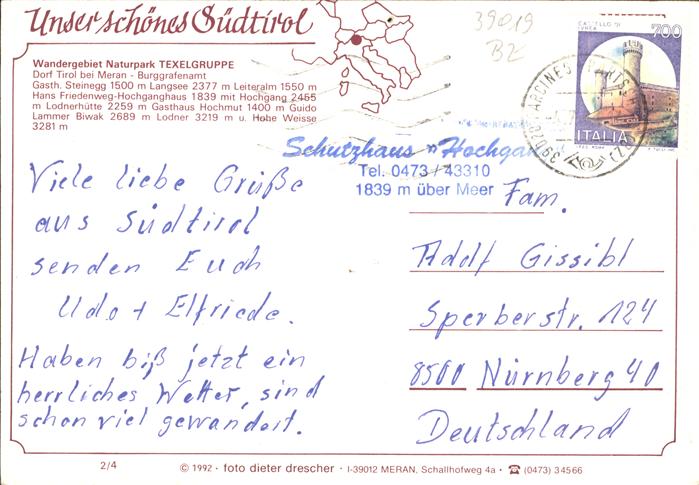 Unser schönes Südtirol
Wandergebiet Naturpark TEXELGRUPPE
Dorf Tirol bei Meran - Burggrafenamt
Gasth. Steinegg 1500 m Langsee 2377 m Leiteralm 1550 m
Hans Friedenweg-Hochganghaus 1839 mit Hochgang 2455
m Lodnerhütte 2259 m Gasthaus Hochmut 1400 m Guido
Lammer Biwak 2689 m Lodner 3219 m u. Hohe Weisse
3281 m
39019
BZ
700
ITALIA
Schutzhaus "Hochgan
Tel. 0473/43310
1839 m über Meer
Viele liebe Grüße
aus Südtirol
senden Euch
Udo + Elfriede.
Haben biß jetzt ein
herrliches Wetter, sind
schon viel gewandert.
Fam.
Adolf Gissibl
Sperberstr. 124
8500 Nürnberg 40
Deutschland
2/4
© 1992 - foto dieter drescher - I-39012 MERAN, Schallhofweg 4a - ☎ (0473) 34566